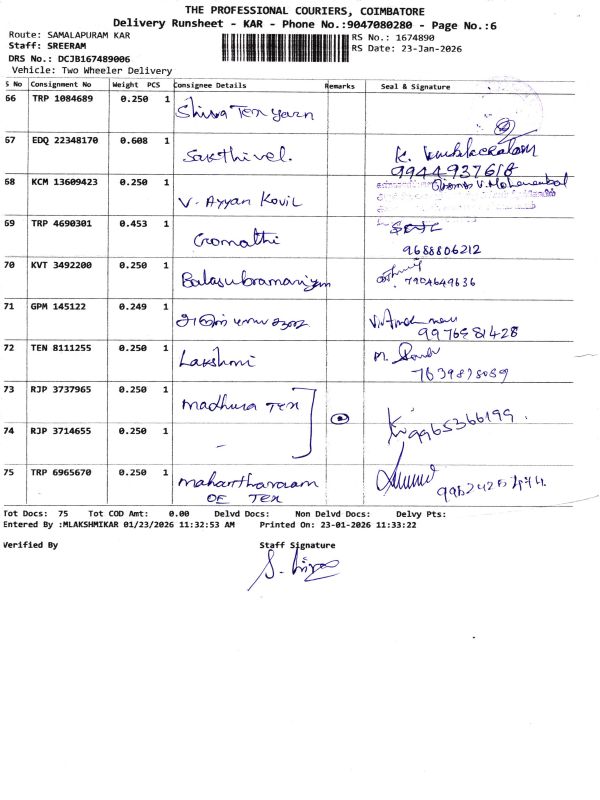 THE PROFESSIONAL COURIERS, COIMBATORE
Delivery Runsheet - KAR - Phone No.:9047080280 - Page No.:6
Route: SAMALAPURAM KAR
RS No.: 1674890
Staff: SREERAM
RS Date: 23-Jan-2026
DRS No.: DCJB167489006
Vehicle: Two Wheeler Delivery
S No Consignment No Weight PCS Consignee Details Remarks Seal & Signature
66 TRP 1084689 0.250 1 Shiva Tex yarn
67 EDQ 22348170 0.608 1 Sakthivel. K. 9944937618
68 KCM 13609423 0.250 1 V. Ayyan Kovil
69 TRP 4690301 0.453 1 Gomathi 9688806212
70 KVT 3492200 0.250 1 Balasubramaniyam 7904649636
71 GPM 145122 0.249 1 9976981428
72 TEN 8111255 0.250 1 Lakshmi M. 7639873059
73 RJP 3737965 0.250 1 Madhura Tex 9965366199.
74 RJP 3714655 0.250 1 -
75 TRP 6965670 0.250 1 OE Tex
Tot Docs: 75 Tot COD Amt: 0.00 Delvd Docs: Non Delvd Docs: Delvy Pts:
Entered By :MLAKSHMIKAR 01/23/2026 11:32:53 AM Printed On: 23-01-2026 11:33:22
Verified By Staff Signature